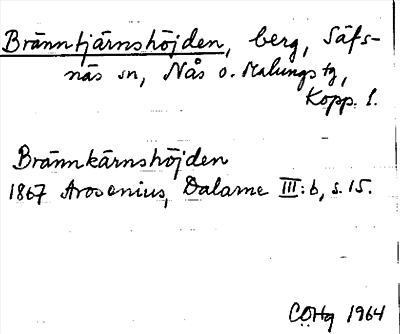 Bränntjärnshöjden, berg, Säfs-
näs sn, Nås o. Malungs tg,
Kopp. l.
Brännkärnshöjden
1867 Arosenius, Dalarne III:b, s. 15.
COHg 1964